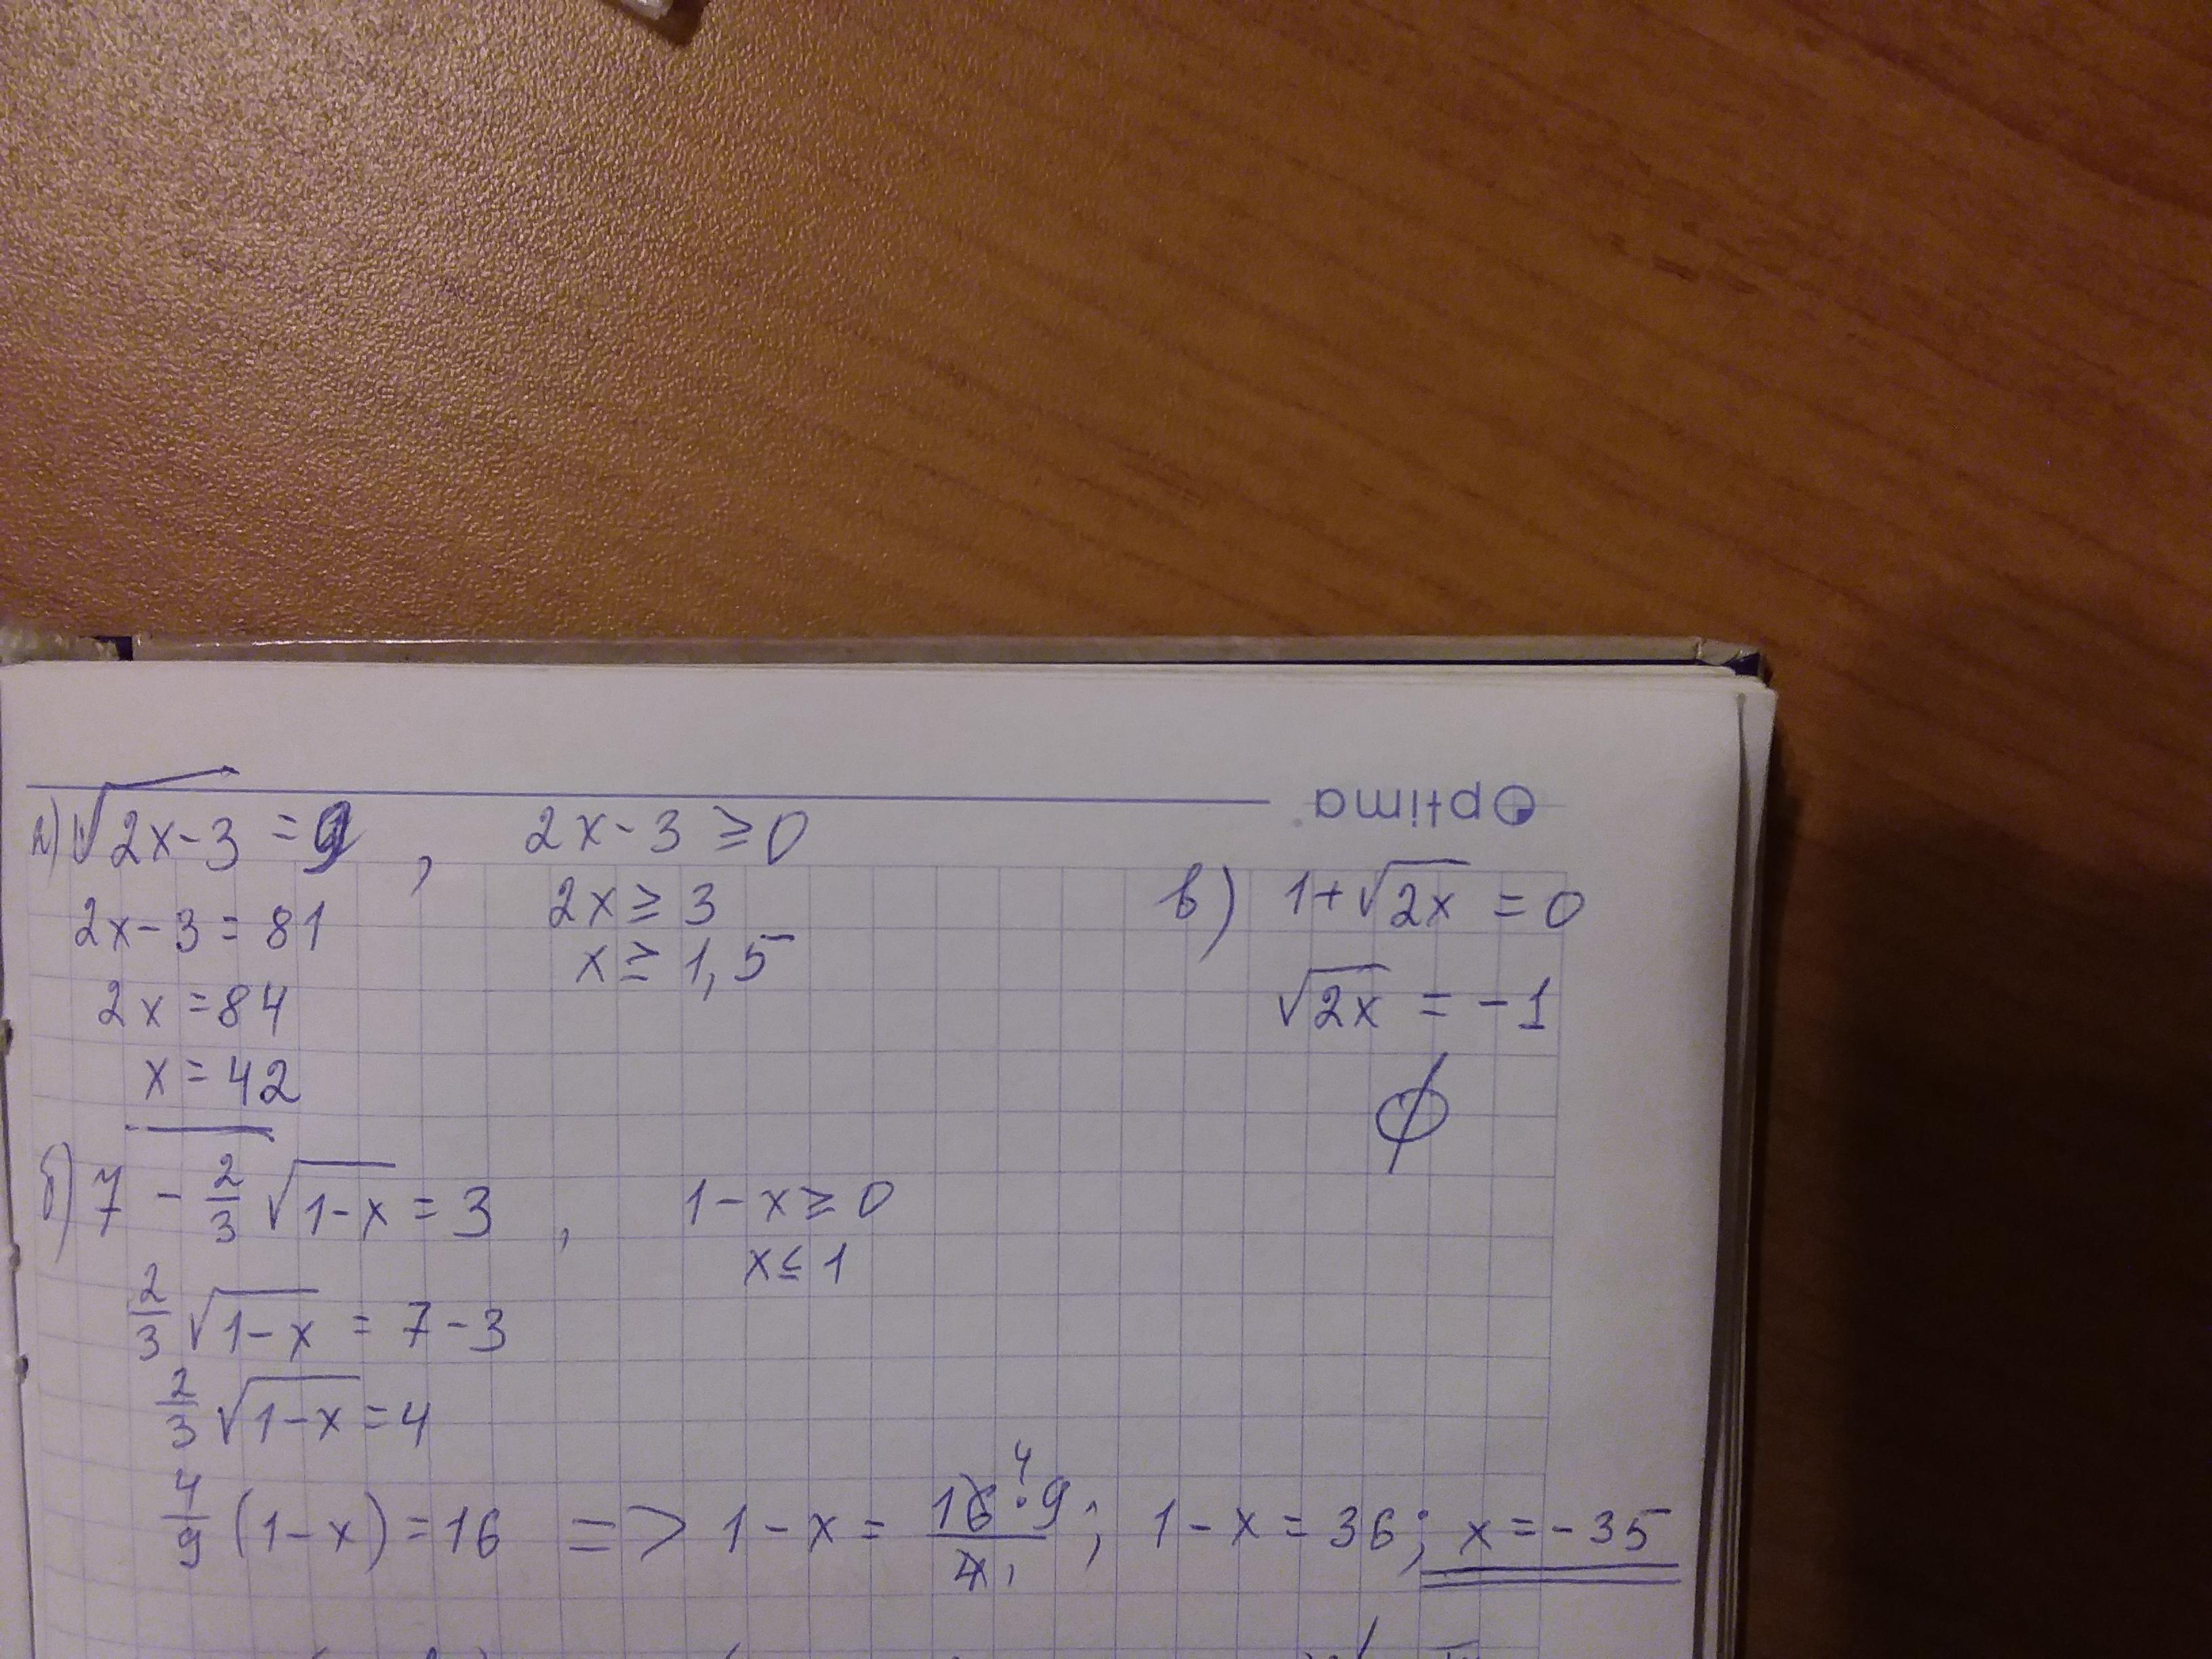 Optima
а) √2x-3 = 9 , 2x-3 ≥ 0
2x-3 = 81
2x ≥ 3
2x = 84
x ≥ 1,5
x = 42
в) 1+√2x = 0
√2x = -1
∅
б) 7 - 2/3 √1-x = 3 , 1-x ≥ 0
x ≤ 1
2/3 √1-x = 7-3
2/3 √1-x = 4
4/9 (1-x) = 16 => 1-x = 16·9/4 ; 1-x = 36; x = -35